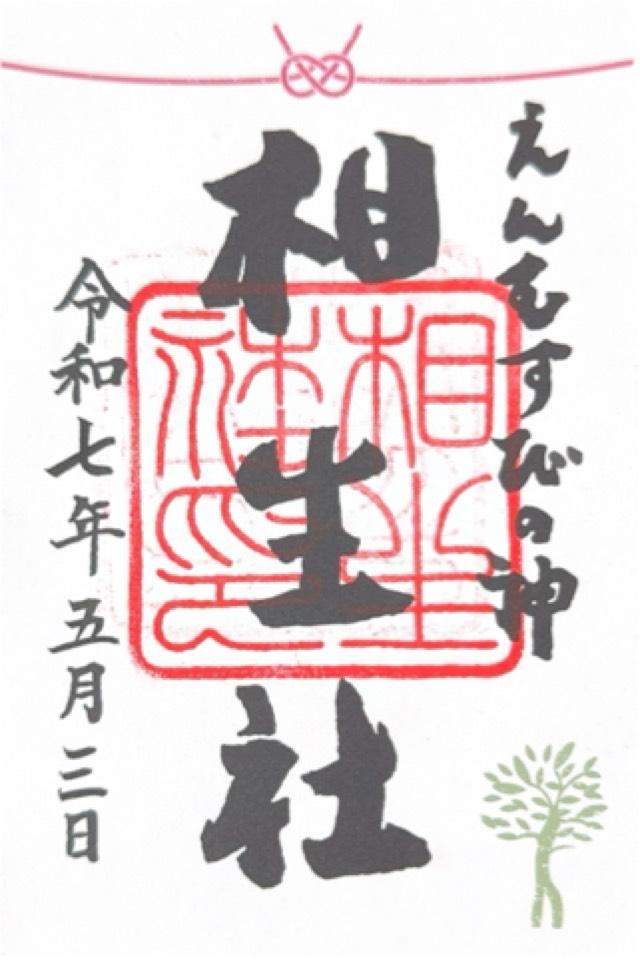 えんむすびの神
相生社
相生社印
令和七年五月三日